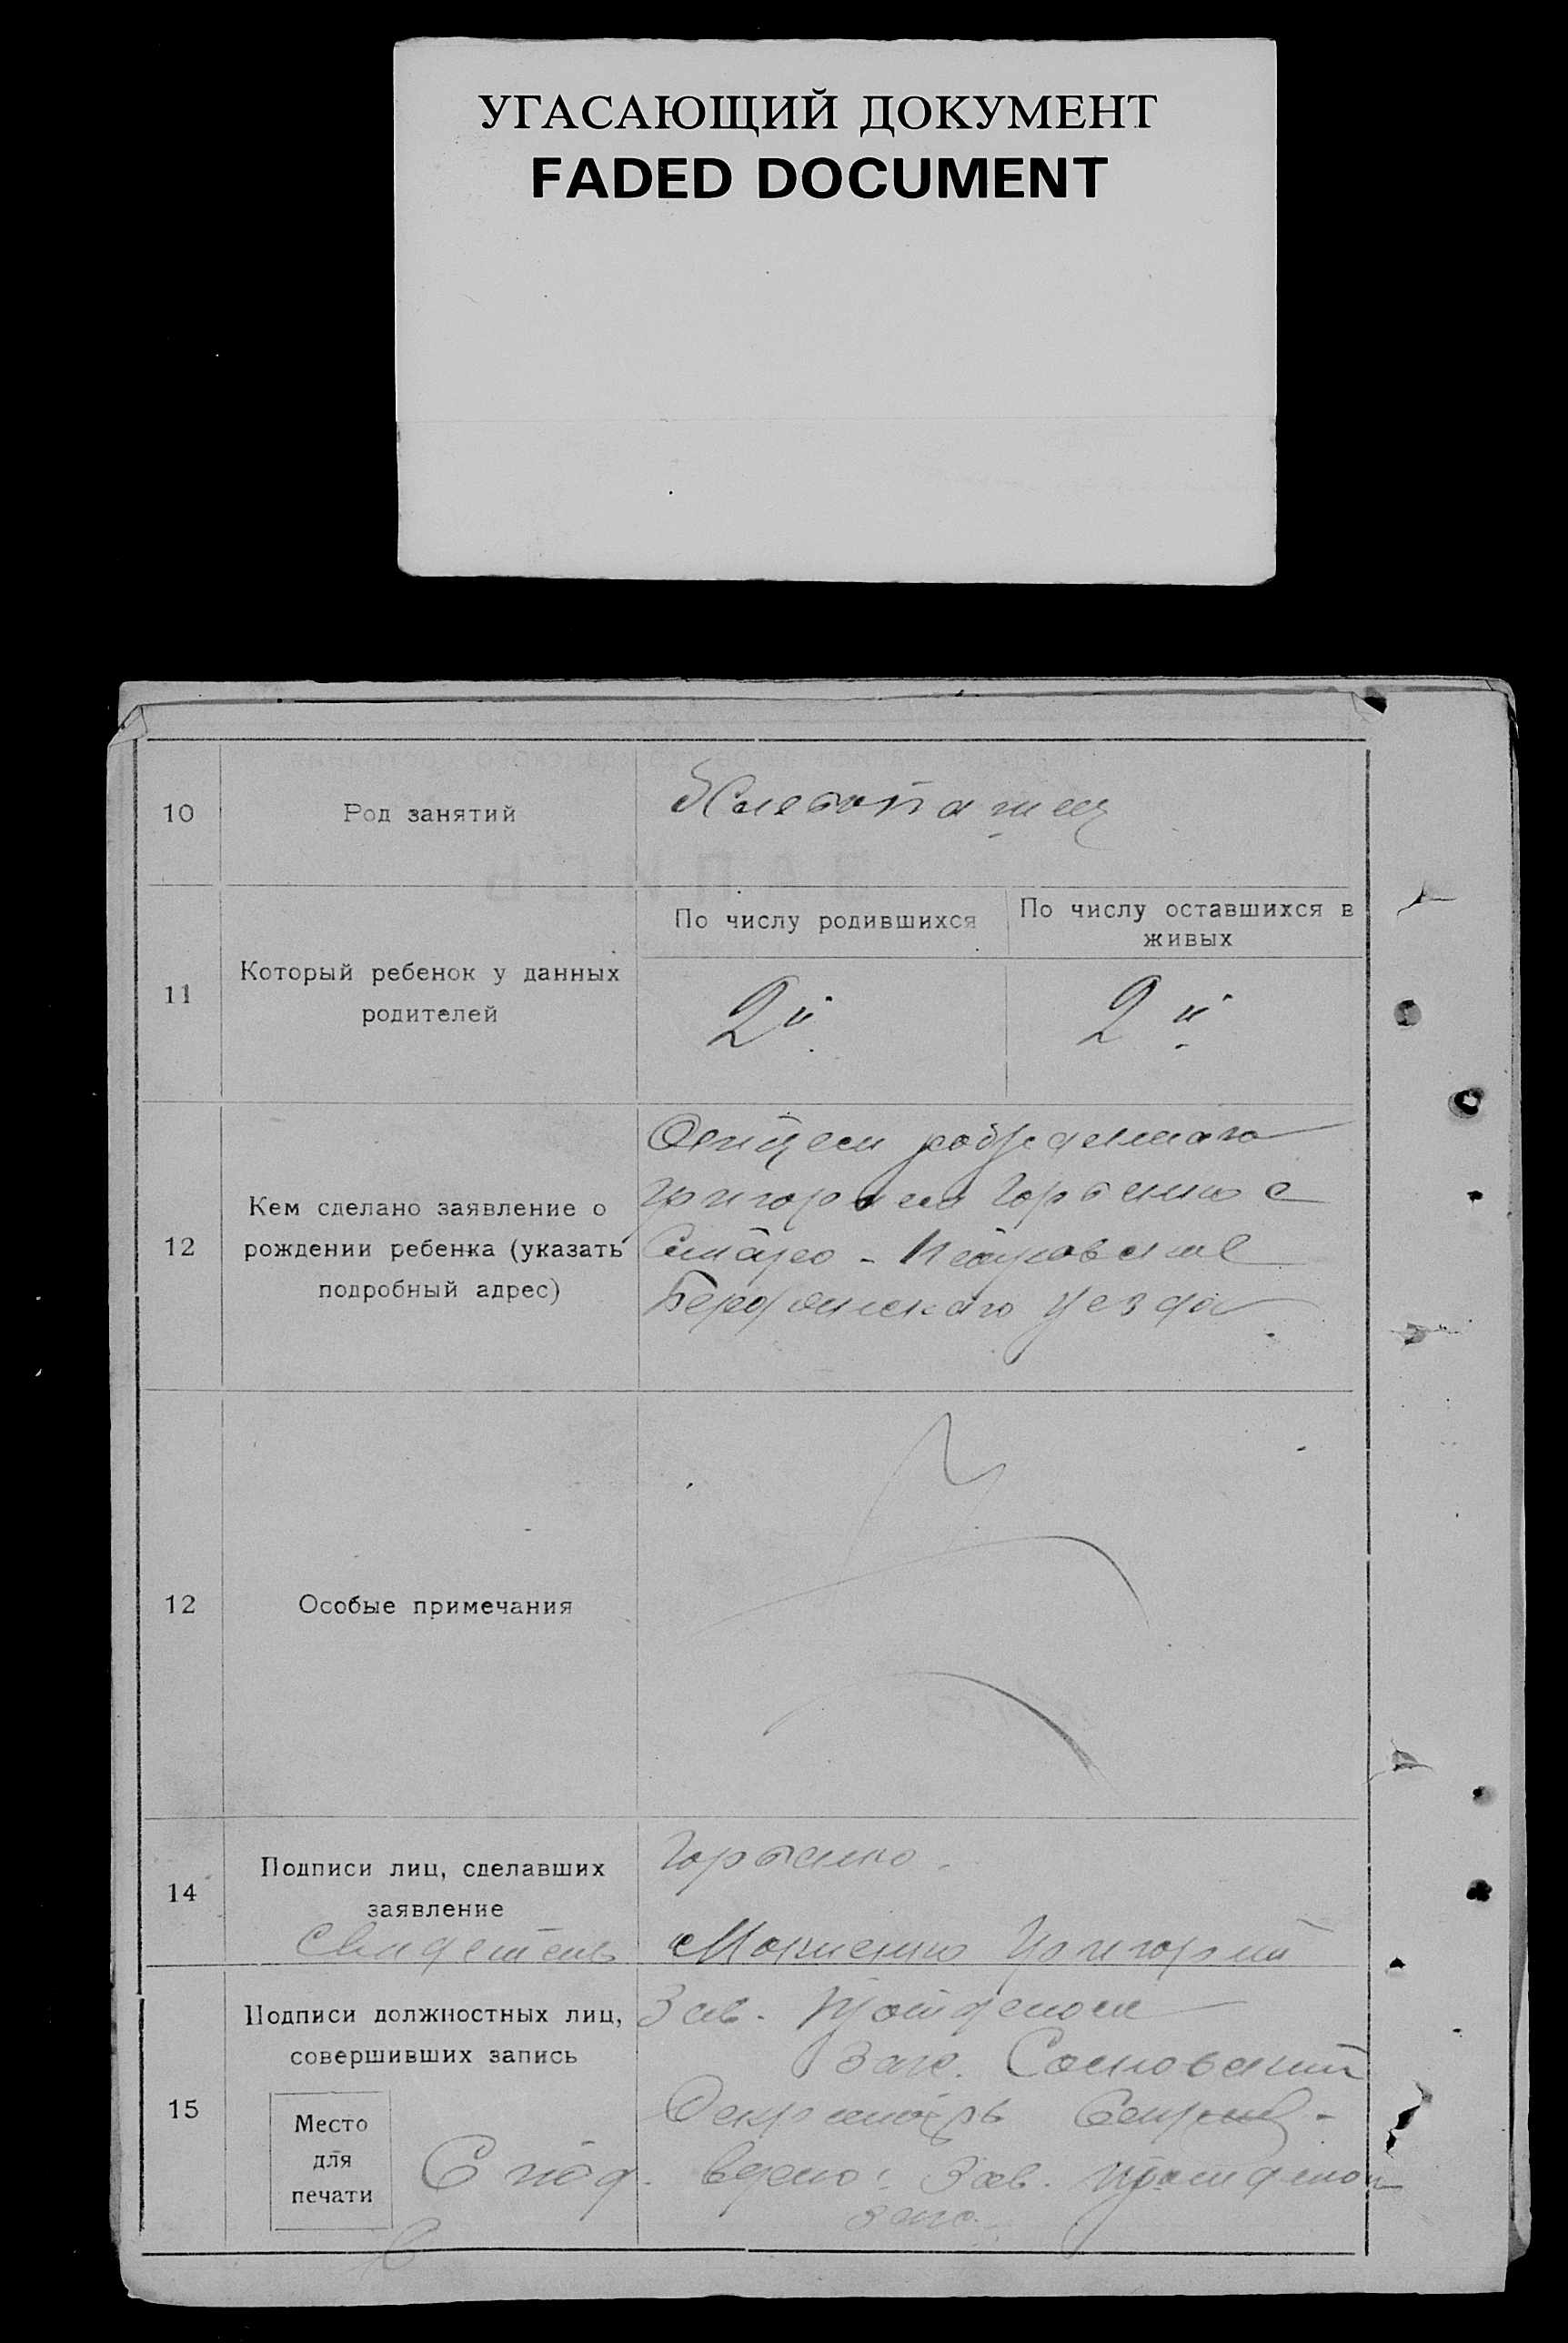 УГАСАЮЩИЙ ДОКУМЕНТ
FADED DOCUMENT
10
Род занятий
Хлебопашец
11
Который ребенок у данных
родителей
По числу родившихся
По числу оставшихся в
живых
2й
2й
12
Кем сделано заявление о
рождении ребенка (указать
подробный адрес)
Отцем
Григорием Горбенко с
Старо-Петровское
Бердянского уезда
12
Особые примечания
14
Подписи лиц, сделавших
заявление
Свидетель
Горбенко.
Григорий
15
Подписи должностных лиц,
совершивших запись
Зав.
Загс. Сосновский
Секретарь
Место
для
печати
С под. верно: Зав.
загс.